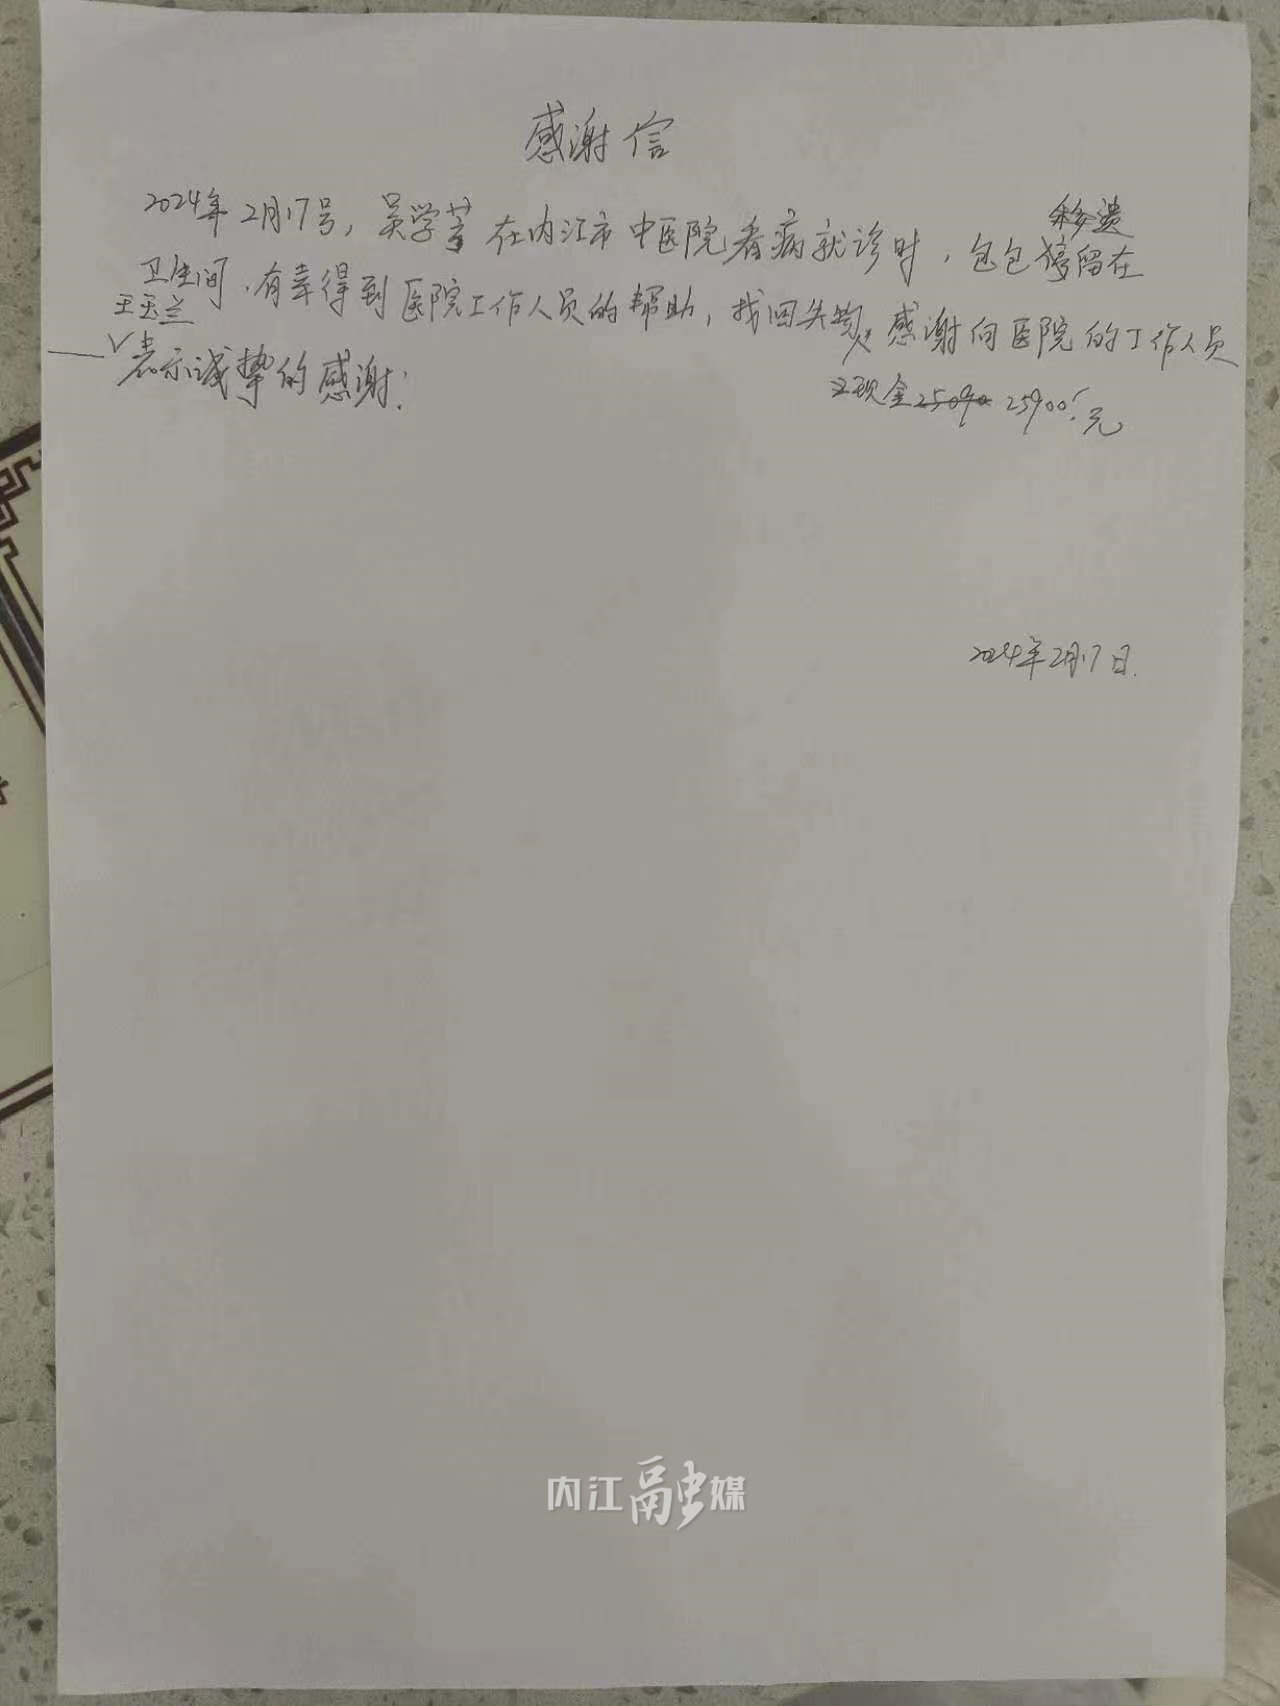 感谢信
2024年2月17号，吴学芳在内江市中医院看病就诊时，包包遗留在
卫生间，有幸得到医院工作人员的帮助，找回失物，感谢向医院的工作人员
王玉兰
表示诚挚的感谢！
现金25090 25900元
2024年2月17日.
内江融媒